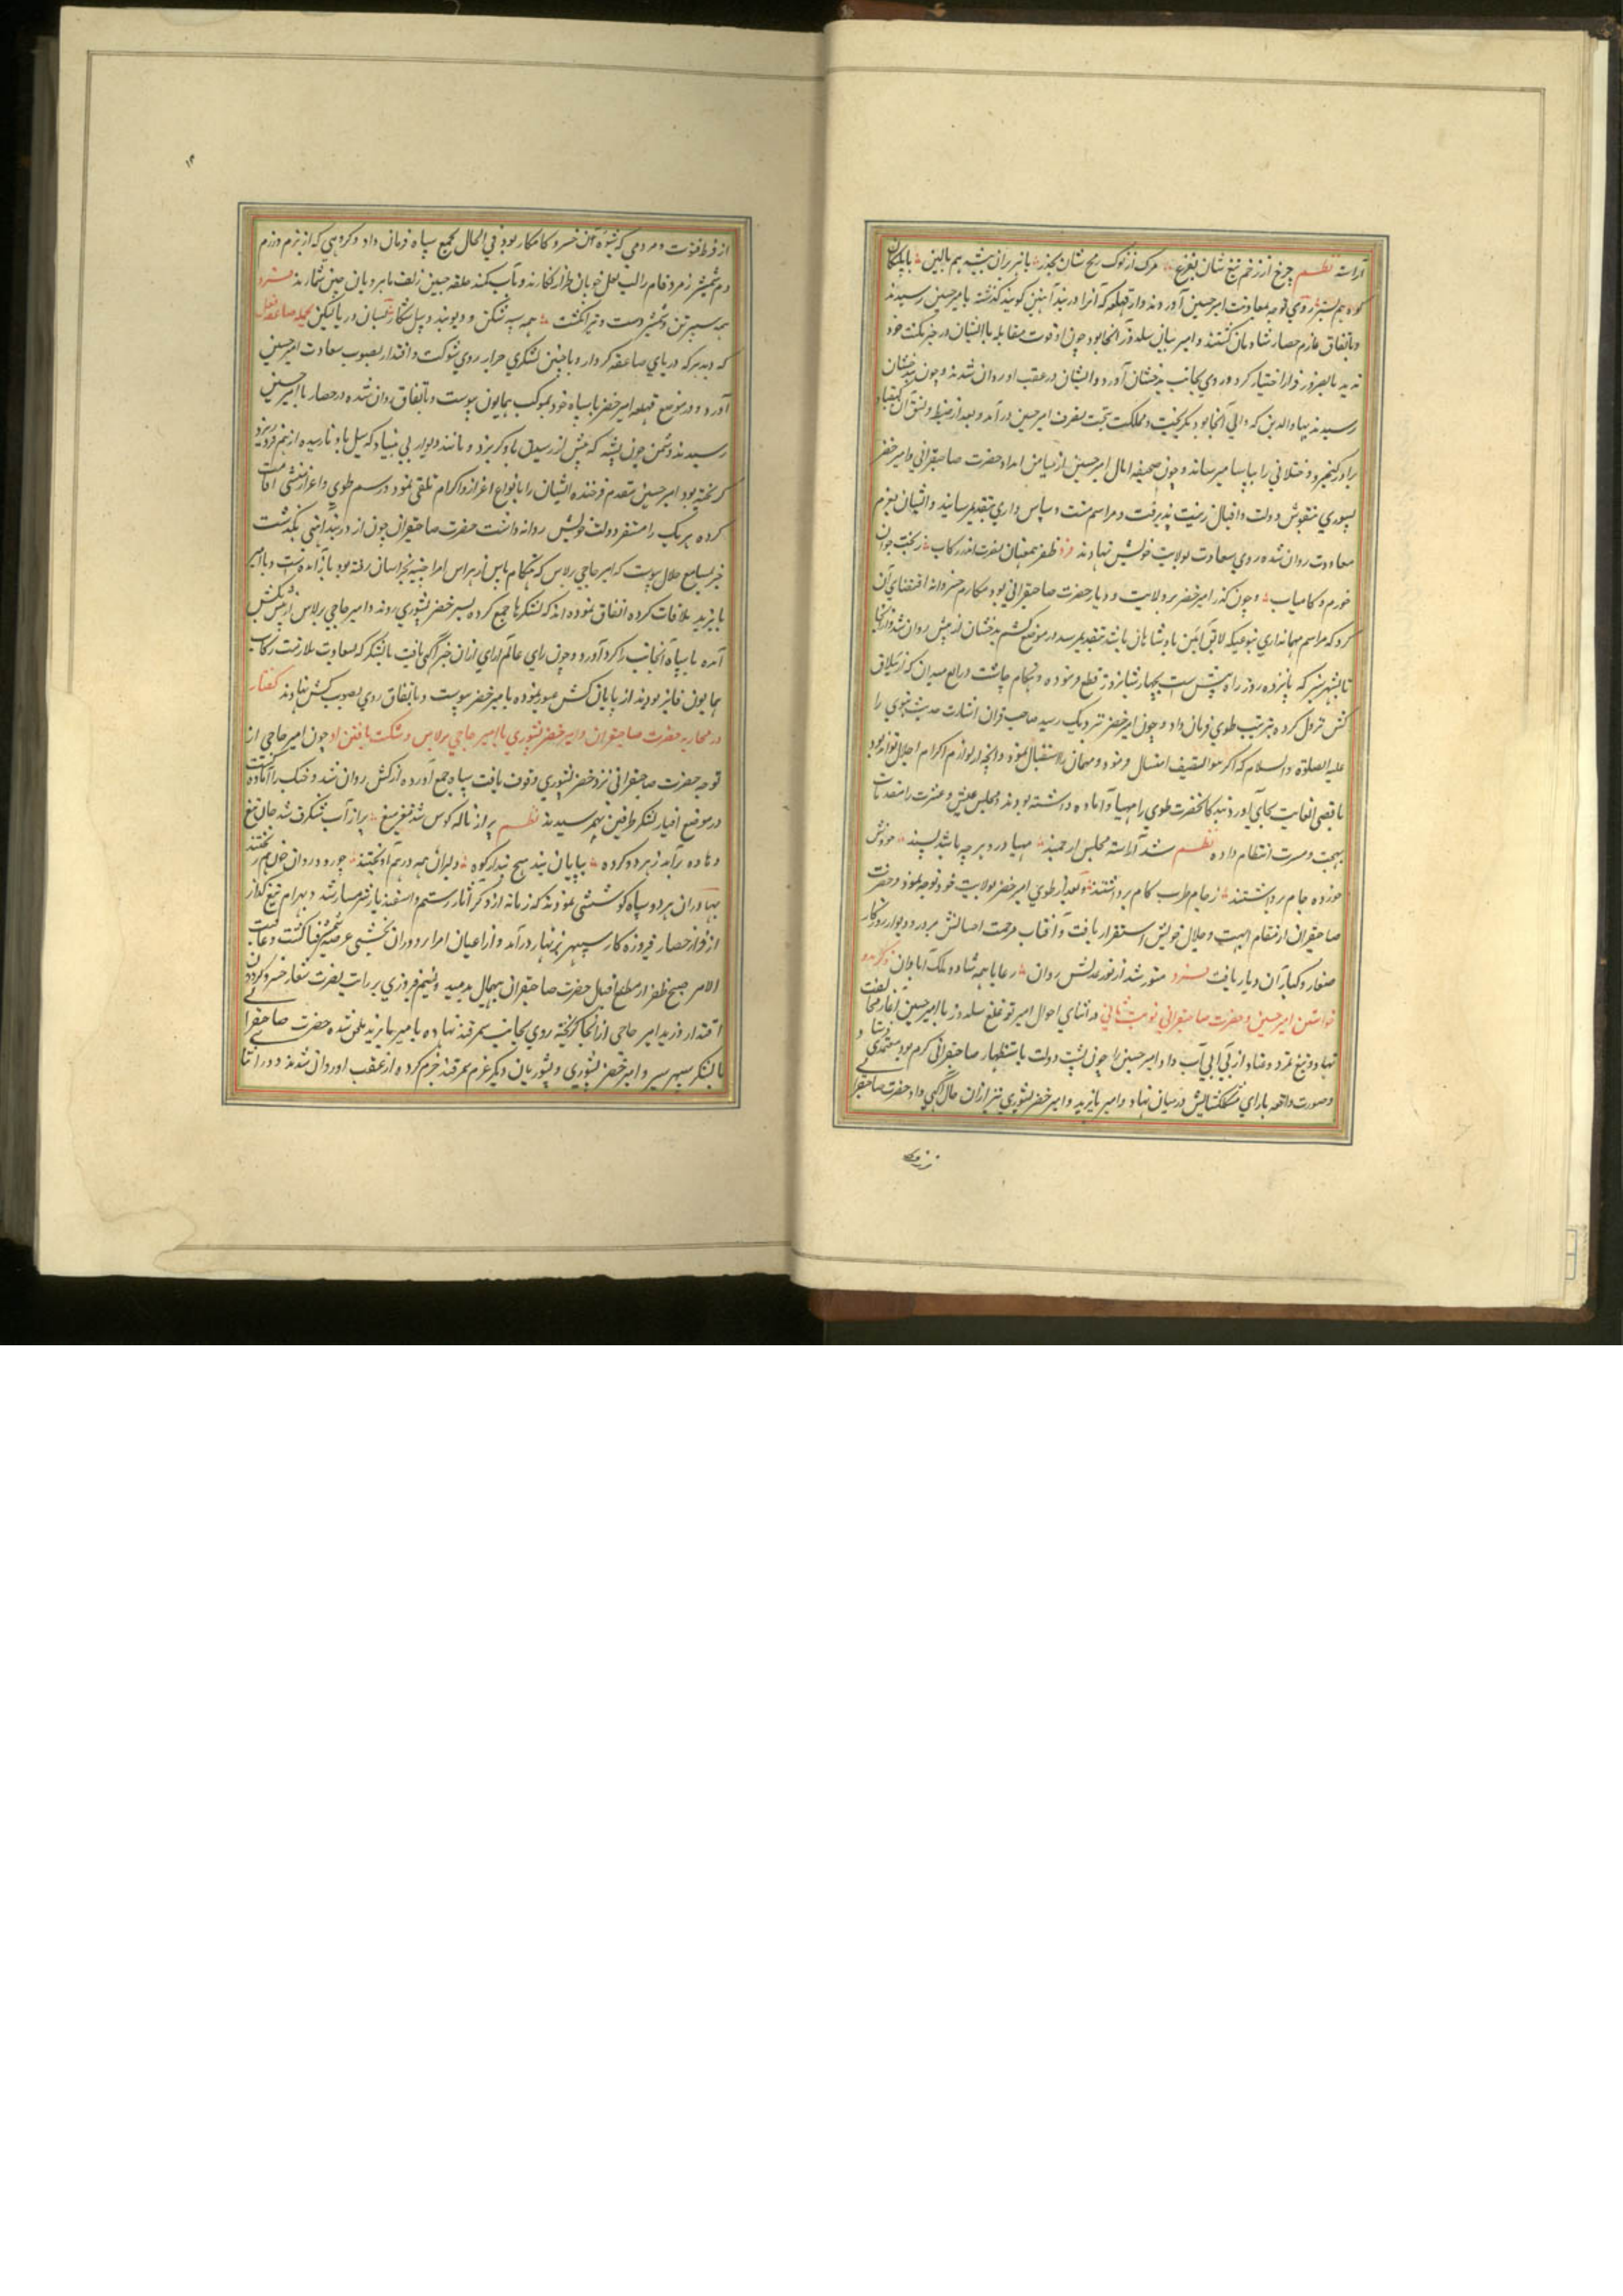 آراسته نظم چرخ از زخم تیغ شان بفزع مرک از نوک رمح شان بحذر با ببر بران ببیشه هم بالین با پلنکان
کوه هم بستر روی توجه بمعاونت امیر حسین آوردند و از قهلغه که آنرا دربند آهنین کویند کذشته بامیر حسین رسیدند
و باتفاق عازم حصار شادمان کشتند و امیر بیان سلدوز در آنجا بود چون او قوت مقابله با ایشان در خیز مکنت خود
ندید بالضرور فرار اختیار کرد و روی بجانب بدخشان آورد و ایشان در عقب او روان شدند و چون ببدخشان
رسیدند بهاء الدین که والی آنجا بود بکریخت و مملکت بتحت تصرف امیر حسین در آمد و بعد از ضبط و نسق آن کیقباد
برادر کیخسرو ختلانی را بیاسا میرساند و چون صحیفه امال امیر حسین از میامن امداد حضرت صاحبقرانی و امیر خضر
یسوری بنقوش دولت و اقبال زینت پذیرفت و مراسم منت و سپاس داری بتقدیم رسانید و ایشان بعزم
معاودت روان شده روی سعادت بولایت خویش نهادند فرد ظفر همعنان نصرت اندر رکاب ز بخت جوان
خورم و کامیاب و چون کذر امیر خضر بر ولایت و دیار حضرت صاحبقرانی بود مکارم خسروانه اقتضای آن
کرد که مراسم مهمانداری بنوعیکه لایق آیین پادشاهان باشد بتقدیم رسد در موضع کشم بدخشان از پیش روان شد و از آنجا
تا بشهر سبز که پانزده روز راه است بچهار شبانروز قطع فرموده و هنکام چاشت در الغ میدان که از ییلاق
کش نزول کرده بترتیب طوی فرمان داد و چون امیر خضر نزدیک رسید صاحب قران اشارت حدیث نبوی را
علیه الصلوة و السلام که اکرموا الضیف امتثال فرموده و مهمان را استقبال نموده و آنچه از لوازم اکرام و اجلال تواند بود
باقصی الغایت بجای آورد بندکان حضرت طوی را مهیا و آماده داشته بودند و مجلس عیش و عشرت را بمقدمات
بهجت و مسرت انتظام داده نظم شد آراسته مجلس ارجمند مهیا درو هر چه باشد پسند خورش
خورده جام برداشتند ز جام طرب کام برداشتند و بعد از طوی امیر خضر بولایت خود توجه نمود و حضرت
صاحبقران در مقام ابهت و جلال خویش استقرار یافت و آفتاب مرحمت احسانش بر در و دیوار روزکار
صغار و کبار آن دیار یافت فرد منور شد از نور عدلش روان رعایا همه شاد و ملک آبادان ذکر مدد
خواستن امیر حسین و حضرت صاحبقرانی نوبت ثانی در اثنای احوال امیر توغلغ سلدوز با امیر حسین آغاز مخالفت
نهاد و تیغ تمرد و عناد از بی آبی آب داد امیر حسین را چون پشت دولت باستظهار صاحبقرانی کرم بود معتمدی فرستاد و
و صورت واقعه با رای مشکل کشایش در میان نهاد و امیر بایزید و امیر خضر یسوری نیز از آن حال آکهی داد حضرت صاحبقرانی
از فرط فتوت و مردمی که شیوه آن خسرو کامکار بود فی الحال بجمیع سپاه فرمان داد و کروهی که از بزم و رزم
دم شمشیر زمرد فام را لب لعل خوبان طراز انکارند و تاب کمند حلقه جبین زلف ماهرویان چین شمارند فرد
همه سپرتن و شمشیر دست و تیر انکشت همه سپه شکن و دیو بند و پیل شکار
که دید هرکه دریای صاعقه کردار و با چنین لشکری جرار روی شوکت و اقتدار بصوب سعادت امیر حسین
آورد و در موضع قهلغه امیر خضر با سپاه خود بموکب همایون پیوست و باتفاق روان شده در حصار با امیر حسین
رسیدند و دشمن چون پشه که پیش از رسیدن باد کریزد و مانند دیوار بی بنیاد که سیل باو نارسیده از هم فرو ریزد
کریخته بود امیر حسین مقدم فرخنده ایشان را بانواع اعزاز و اکرام تلقی نمود و رسم طوی و اعزاز منشی اقامت
کرده هر یک را بمستقر دولت خویش روانه داشت حضرت صاحبقران چون از دربند آهنی بکذشت
خبر بمسامع جلال پیوست که امیر حاجی برلاس که هنکام یاس از هراس امراء جته بخراسان رفته بود باز آمده است و با امیر
بایزید ملاقات کرده اتفاق نموده اند که لشکرها جمع کرده بسر خضر یسوری روند و امیر حاجی برلاس از پیش بکش
آمده تا سپاه آنجانب را کرد آورد و چون رای عالم آرای از آن خبر آکهی یافت با لشکر که بسعادت ملازمت رکاب
همایون فایز بودند از پایان کش عبور نموده بامیر خضر پیوست و باتفاق روی بصوب کش نهادند کفتار
در محاربه حضرت صاحبقران و امیر خضر یسوری با امیر حاجی برلاس و شکست یافتن او چون امیر حاجی از
توجه حضرت صاحبقرانی نزد خضر یسوری وقوف یافت سپاه جمع آورده از کش روان شد و جنک را آماده کشت
در موضع اقیار لشکر طرفین بهم رسیدند نظم پر از ناله کوس شد مغز میغ پر از آب شنکرف شد جان تیغ
دهاده بر آمد ز هر دو کروه بیابان نبد هیچ پیدا ز کوه دلیران همه در هم آویختند چو رود روان خون هم ریختند
بهادران هر دو سپاه کوششی نمودند که زمانه از ذکر آثار رستم و اسفندیار شرمسار شد و بهرام تیغ کذار
از فراز حصار فیروزه کار سپهر بزنهار در آمد و از اعیان امرا دوران بخشی عرضه شمشیر فنا کشت و عاقبت
الامر صبح ظفر از مطلع اقبال حضرت صاحبقران بیهمال بدمید و نسیم فیروزی بر رایت نصرت شعار خسرو کردون
اقتدار وزید امیر حاجی از آنجا کریخته روی بجانب سمرقند نهاده بامیر بایزید ملحق شده حضرت صاحبقرانی
با لشکر سپهر سیر و امیر خضر یسوری و یسوریان دیکر عزم سمرقند جزم کرده از عقب او روان شدند و در اثنا